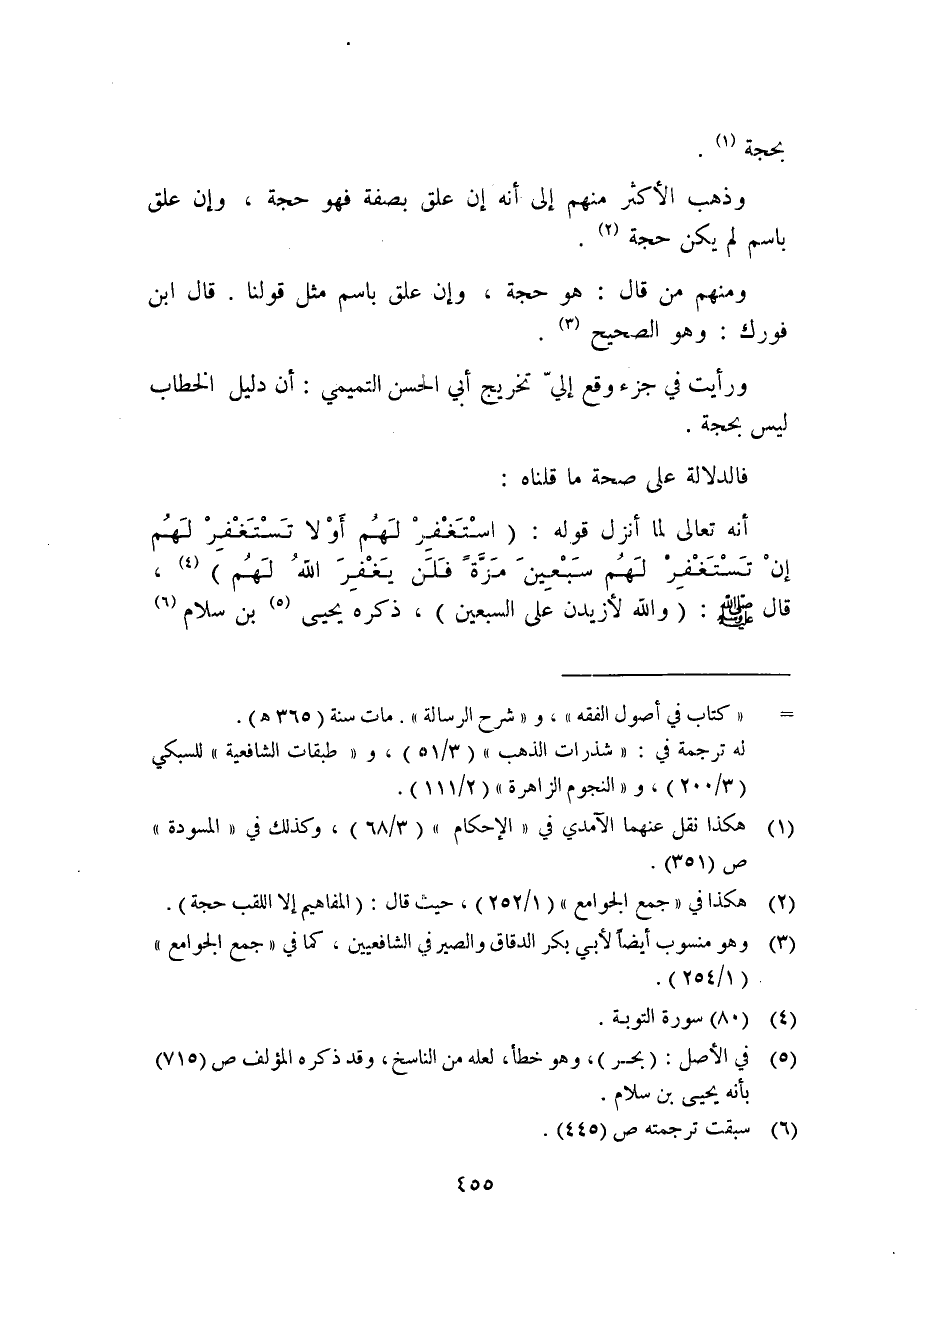 بحجة (١) .
وذهب الأكثر منهم إلى أنه إن علق بصفة فهو حجة ، وإن علق
باسم لم يكن حجة (٢) .
ومنهم من قال : هو حجة ، وإن علق باسم مثل قولنا . قال ابن
فورك : وهو الصحيح (٣) .
ورأيت في جزء وقع إليّ تخريج أبي الحسن التميمي : أن دليل الخطاب
ليس بحجة .
فالدلالة على صحة ما قلناه :
أنه تعالى لما أنزل قوله : ( اسْتَغْفِرْ لَهُم أَوْ لا تَسْتَغْفِرْ لَهُم
إنْ تَسْتَغْفِرْ لَهُم سَبْعِينَ مَرَّةً فَلَن يَغْفِرَ اللهُ لَهُم ) (٤) ،
قال ﷺ : ( والله لأزيدن على السبعين ) ، ذكره يحيى (٥) بن سلام (٦)
= « كتاب في أصول الفقه » ، و « شرح الرسالة » . مات سنة ( ٣٦٥ ه ) .
له ترجمة في : « شذرات الذهب » ( ٥١/٣ ) ، و « طبقات الشافعية » للسبكي
( ٢٠٠/٣ ) ، و « النجوم الزاهرة » ( ١١١/٢ ) .
(١) هكذا نقل عنهما الآمدي في « الإحكام » ( ٦٨/٣ ) ، وكذلك في « المسودة »
ص (٣٥١) .
(٢) هكذا في « جمع الجوامع » ( ٢٥٢/١ ) ، حيث قال : ( المفاهيم إلا اللقب حجة ) .
(٣) وهو منسوب أيضاً لأبي بكر الدقاق والصيرفي الشافعيين ، كما في « جمع الجوامع »
( ٢٥٤/١ ) .
(٤) (٨٠) سورة التوبة .
(٥) في الأصل : ( بحر ) ، وهو خطأ، لعله من الناسخ ، وقد ذكره المؤلف ص (٧١٥)
بأنه يحيى بن سلام .
(٦) سبقت ترجمته ص (٤٤٥) .
٤٥٥